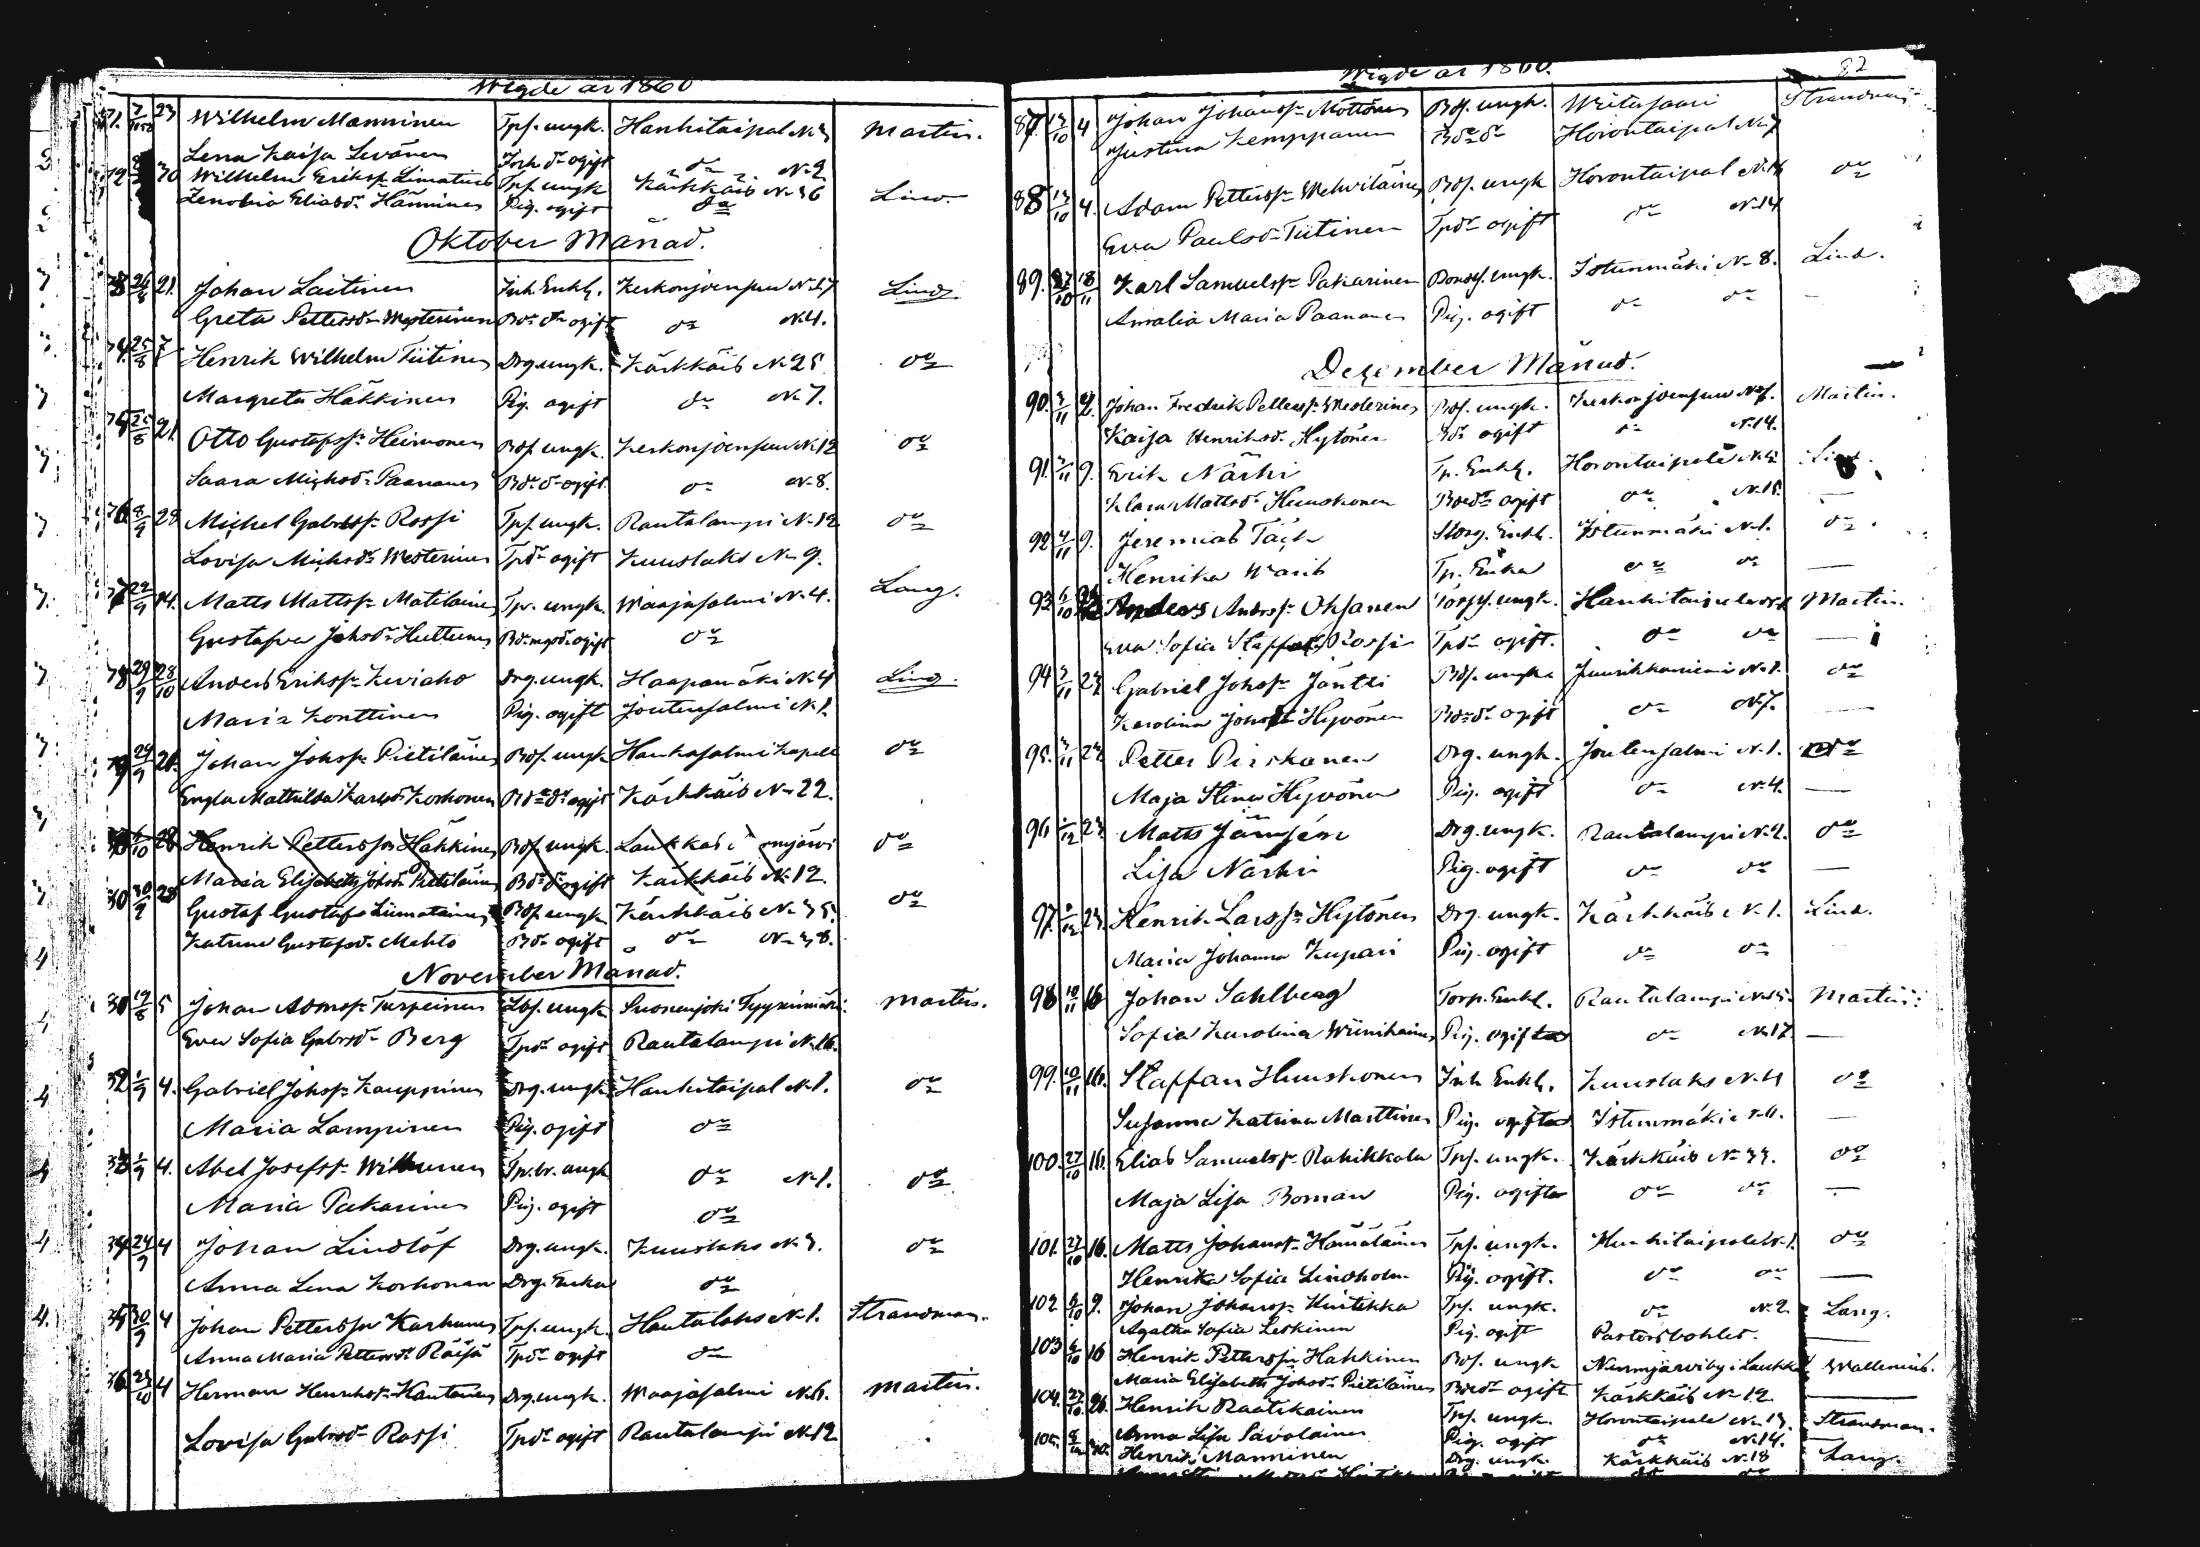 Wigde år 1860
71. 23 Wilhelm Manninen Tpf. ungk. Hankitaipal N. 3 Martin.
Lena Kaisa Levänen Inh. dr ogift do N. 2
72 30 Wilhelm Eriksf. Limatius Tpf. ungk Kärkkäis N. 36 Lind.
Zenobia Eliasdr. Hänninen Pig. ogift do
Oktober Månad.
73 26/8 21. Johan Laitinen Inh. Enkl. Kerkonjoensuu N. 17 Lind.
Greta Pettersdr Westerinen Bdr ogift do N. 4.
74 25/8 7 Henrik Wilhelm Tiitinen Drg. ungk. Kärkkäis N. 25 do
Margreta Häkkinen Pig. ogift do N. 7.
75 25/8 21. Otto Gustafsf. Heimonen Bdf. ungk. Kerkonjoensuu N. 12 do
Saara Michsdr. Paananen Bdr ogift. do N. 8.
76 8/9 28 Michel Gabrsf. Rossi Tpf. ungk. Rautalampi N. 12 do
Lovisa Michsdr. Westerinen Tpdr ogift Kuuslaks N. 9.
77 22/9 14. Matts Mattsf. Matilainen Tp. ungk. Waajasalmi N. 4. Lang.
Gustafva Johsdr. Huttunen ogift do
78 29/9 28/10 Anders Eriksf. Keviaho Drg. ungk. Haapamäki N. 4 Ling.
Maria Konttinen Pig. ogift Joutensalmi N. 1.
79 29/9 21. Johan Johsf. Pietiläinen Bdf. ungk Hankasalmi Kapell do
Engla Mathilda Karlsdr. Korhonen Bdr ogift Kärkkäis N. 22.
/10 28 Henrik Petterssson Häkkinen Bdf. ungk. Laukkas i do
Maria Elisabeth Johsdr Pietiläinen Bdr ogift Kärkkäis N. 12.
80 30/9 28 Gustaf Gustafs Liimatainen Bdf. ungk Kärkkäis N. 35. do
Katrina Gustafsdr. Mehto Bdr ogift do N. 38.
November Månad.
19/8 5 Johan Adamsf. Turpeinen Lbf. ungk Suonenjoki Martin.
Eva Sofia Gabrsdr. Berg Tpdr ogift Rautalampi N. 16.
82 1/9 4. Gabriel Johsf. Kauppinen Drg. ungk Hankitaipal N. 1. do
Maria Lampinen Pig. ogift do
83 1/9 4. Abel Josefsf. Tp. br. ungk do N. 1. do
Maria Pakarinen Pig. ogift do
84 24/9 4 Johan Lindlöf Drg. ungk. Kuuslaks N. 3. do
Anna Lena Korhonen Drg. Enka do
85 30/9 4 Johan Pettersson Karhunen Tpf. ungk. Hautalaks N. 1. Strandman.
Anna Maria Pettersdr Räisä Tpdr ogift do
86 23/10 4 Herman Henriksf. Kautonen Drg. ungk. Waajasalmi N. 6. Martin.
Lovisa Gabrsdr. Rossi Tpdr ogift Rautalampi N. 12
Wigde år 1860. 82
87. 13/10 4 Johan Johansf. Möttönen Bdf. ungk. Witasaari Strandman
Justina Kemppainen Bdr dr Horontaipal N. 7
88 13/10 4. Adam Pettersf. Wehviläinen Bdf. ungk Horontaipal N. 14 do
Eva Paulsdr. Tiitinen Tpdr ogift do N. 14
89. 27/10 18/11 Karl Samuelsf. Pakarinen Bondsf. ungk. Istunmäki N. 8. Lind.
Amalia Maria Paananen Pig. ogift do do
Dezember Månad.
90. 3/11 2. Johan Fredrik Pettersf. Westerinen Bdf. ungk. Kerkonjoensuu N. 7. Martin.
Kaisa Henriksdr. Hytönen Bdr ogift do N. 14.
91. /11 9. Erik Närhi Tp. Enkl. Horontaipale N. Lind.
Klara Mattsdr. Huuskonen Bdr ogift do N. 15.
92 4/11 9. Jeremias Täck Storg. Enkl. Istunmäki N. 1. do
Henrika Waris Tp. Enka do do
93 /10 Anders Andersf. Oksanen Torpf. ungk. Hankitaipale Martin.
Eva Sofia Staffsdr. Rossi Tpdr ogift. do do
94 3/11 23 Gabriel Johsf. Jäntti Bdf. ungk. Juurikkaniemi N. 1. do
Karolina Johsdr Hyvönen Bdr ogift do N. 7.
95. /11 23 Petter Piiskanen Drg. ungk. Joutensalmi N. 1. do
Maja Stina Hyvönen Pig. ogift do N. 4.
96. /12 23 Matts Jämsén Drg. ungk. Rautalampi N. 2. do
Lisa Närhi Pig. ogift do do
97. /12 23 Henrik Larsf. Hytönen Drg. ungk. Kärkkäis N. 1. Lind.
Maria Johanna Kupari Pig. ogift do do
98 10/11 16 Johan Sahlberg Torp. Enkl. Rautalampi N. 15. Martin.
Sofia Karolina Wiinikainen Pig. ogift do N. 17.
99. 10/11 16. Staffan Huuskonen Inh. Enkl. Kuuslaks N. 4 do
Susanna Katrina Marttinen Pig. ogift Istunmäki N. 11.
100. 27/10 16. Elias Samuelsf. Rahikkala Tpf. ungk. Kärkkäis N. 33. do
Maja Lisa Boman Pig. ogift do do
101. 27/10 16. Matts Johansf. Hämäläinen Tpf. ungk. Hankitaipale N. 1. do
Henrika Sofia Lindholm Pig. ogift. do do
102 6/10 9. Johan Johansf. Hintikka Tpf. ungk. do N. 2. Lang.
Agatha Sofia Leskinen Pig. ogift Pastorsbohlet.
103 6/10 16 Henrik Pettersson Häkkinen Bdf. ungk Niemijärviby i Laukkas Wallenius.
Maria Elisabeth Johsdr. Pietiläinen Bdr ogift Kärkkäis N. 12
104. 27/10 26. Henrik Raatikainen Tpf. ungk. Horontaipale N. 13. Strandman.
Anna Lisa Savolainen Pig. ogift do N. 14.
105. 30. Henrik Manninen Drg. ungk. Kärkkäis N. 18 Lang.